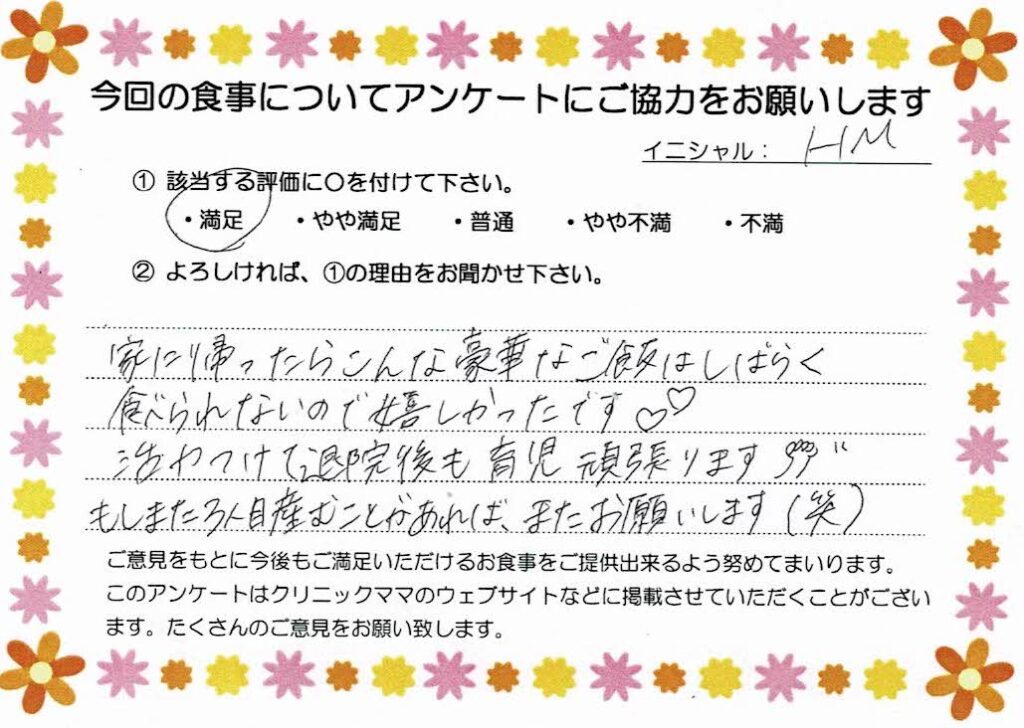 今回の食事についてアンケートにご協力をお願いします
イニシャル： HM
① 該当する評価に○を付けて下さい。
・満足 ・やや満足 ・普通 ・やや不満 ・不満
② よろしければ、①の理由をお聞かせ下さい。
家に帰ったらこんな豪華なご飯はしばらく
食べられないので嬉しかったです♡♡
つけて退院後も育児頑張ります
もしまた3人目産むことがあれば、またお願いします(笑)
ご意見をもとに今後もご満足いただけるお食事をご提供出来るよう努めてまいります。
このアンケートはクリニックママのウェブサイトなどに掲載させていただくことがござい
ます。たくさんのご意見をお願い致します。